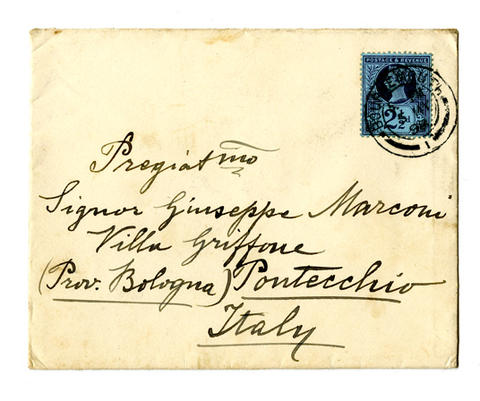 POSTAGE & REVENUE
2½d
BOURNEMOUTH
1
Pregiatmo
Signor Giuseppe Marconi
Villa Griffone
(Prov. Bologna) Pontecchio
Italy